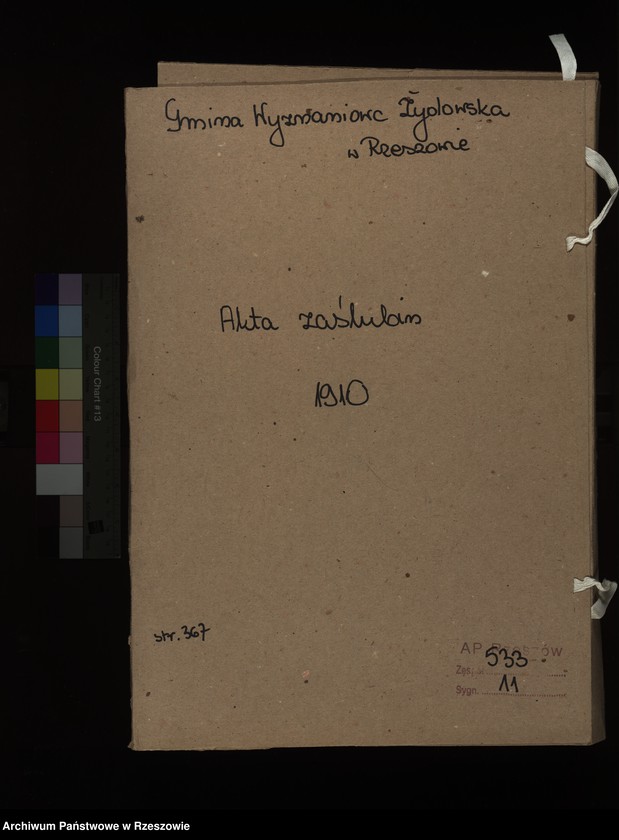 Gmina Wyznaniowa Żydowska
w Rzeszowie
Akta zaślubin
1910
str. 367
AP Rzeszów
Zesp. 533
Sygn. 11
Colour Chart #13
Archiwum Państwowe w Rzeszowie